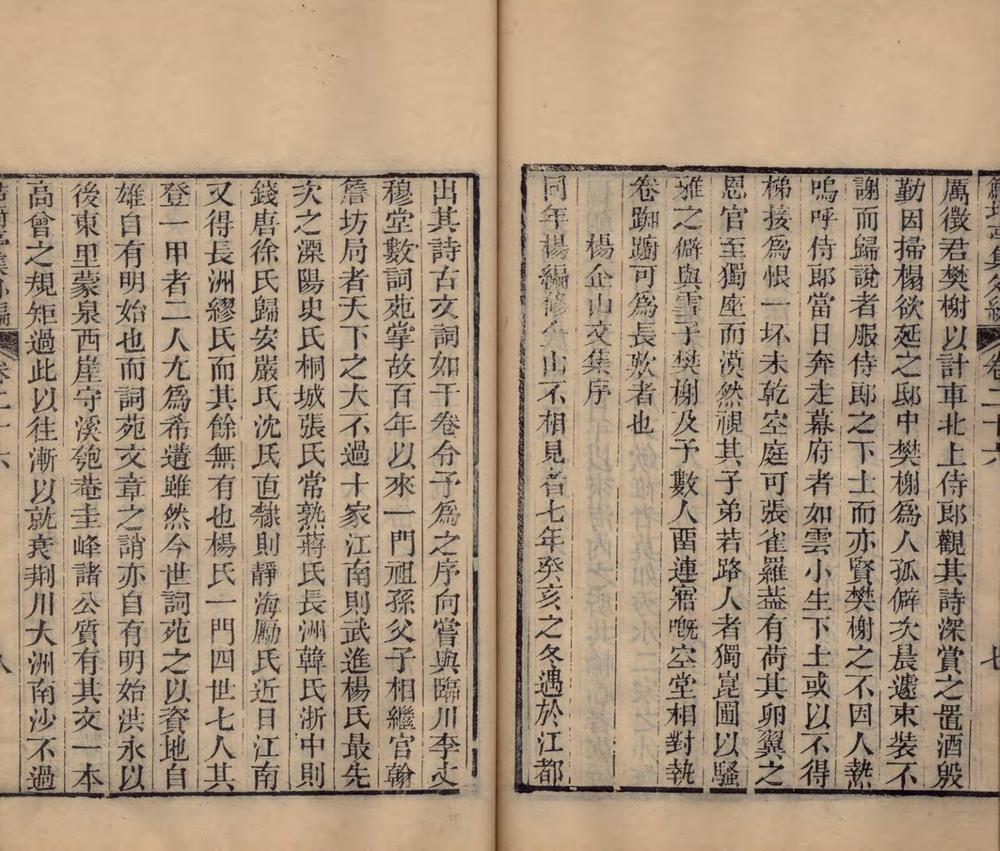 鮚埼亭集外編 卷二十六 七
厲徵君樊榭以計車北上侍郎觀其詩深賞之置酒殷
勤因掃榻欲延之邸中樊榭爲人孤僻次晨遽束裝不
謝而歸說者服侍郎之下士而亦賢樊榭之不因人熱
嗚呼侍郎當日奔走幕府者如雲小生下士或以不得
梯接爲恨一坏未乾空庭可張雀羅葢有荷其卵翼之
恩官至獨座而漠然視其子弟若路人者獨崑圃以騷
雅之僻與雪子樊榭及予數人畱連寤嘅空堂相對執
卷踟躕可爲長歎者也
楊企山文集序
同年楊編修企山不相見者七年癸亥之冬遇於江都
出其詩古文詞如干卷令予爲之序向嘗與臨川李丈
穆堂數詞苑掌故百年以來一門祖孫父子相繼官翰
詹坊局者天下之大不過十家江南則武進楊氏最先
次之溧陽史氏桐城張氏常熟蔣氏長洲韓氏浙中則
錢唐徐氏歸安嚴氏沈氏直隸則靜海勵氏近日江南
又得長洲繆氏而其餘無有也楊氏一門四世七人其
登一甲者二人尤爲希遘雖然今世詞苑之以資地自
雄自有明始也而詞苑文章之誚亦自有明始洪永以
後東里蒙泉西崖守溪匏菴圭峰諸公質有其文一本
高曾之規矩過此以往漸以就衰荆川大洲南沙不過
卷二十六 八